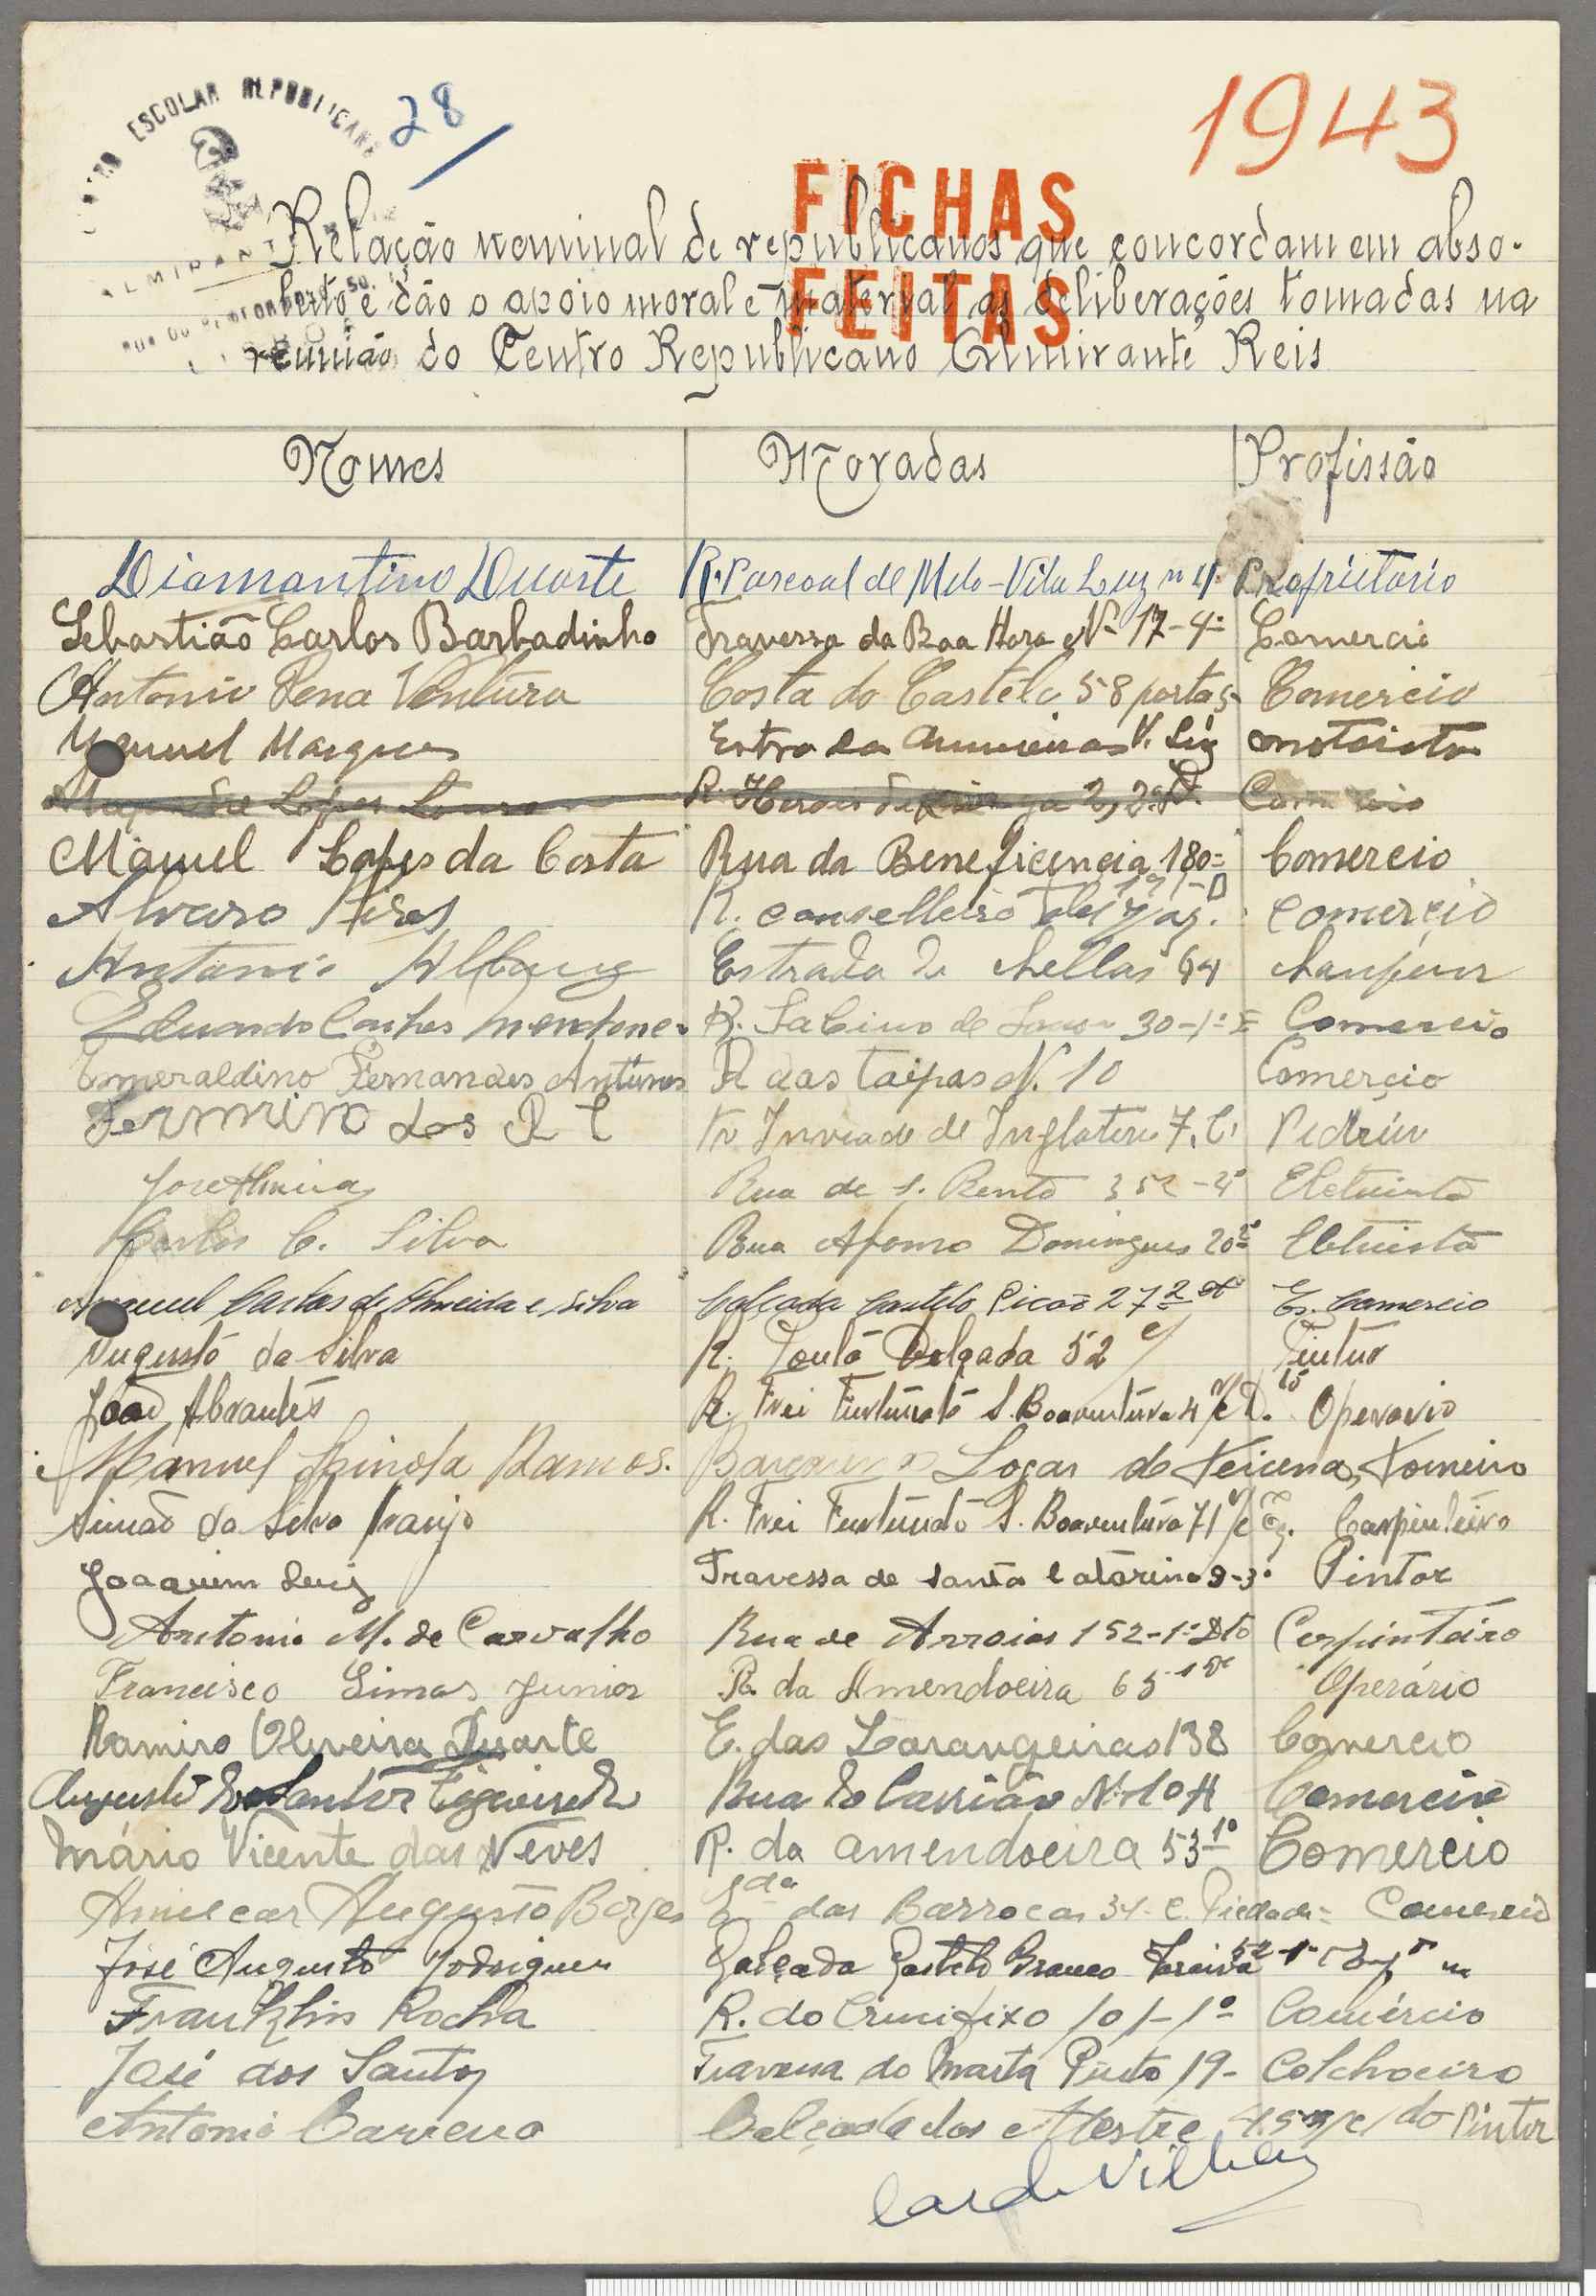 ESCOLAR REPUBLICANO
28
1943
FICHAS
FEITAS
Relação nominal de republicanos que concordam em abso-
luto e dão o apoio moral e material ás deliberações tomadas na
reunião do Centro Republicano Almirante Reis
Nomes Moradas Profissão
Diamantino Duarte R. Pascoal de Melo - Vila Luz nº 4 Proprietario
Sebastião Carlos Barbadinho Travessa da Boa Hora Nº 17-4º Comercio
Antonio Pena Ventura Costa do Castelo 58 portas Comercio
Manuel Marques Estra da
Lopes R. Herois de 2, 2º Comercio
Manuel Lopes da Costa Rua da Beneficencia 180= Comercio
Alvaro Pires R. conselheiro Comercio
Antonio Estrada de Chellas 64
Eduardo R. Sabino de Sousa 30-1º E Comercio
Esmeraldino Fernandes Antunes R das Taipas N. 10 Comercio
Fermino dos Tv de Inglater 7,
José Rua de S. Bento 352
Carlos C. Silva Rua Afonso Domingues 20
Manuel Carlos de Almeida e Silva Calçada Castelo Picão 27 2º Comercio
Augusto da Silva R. Ponta Delgada 52 Pintor
João Abrantes R. Frei Furtunato S. Boaventura 4 r/c D. Operario
Manuel Spinola Ramos. Barquerena Logar de Teicena, Torneiro
Simão da Silva Araujo R. Frei Furtunato S. Boaventura 71 r/c Eq. Carpinteiro
Joaquim Luiz Travessa de Santa Catarina 9-3º Pintor
Antonio M. de Carvalho Rua de Arroios 152-1º Dto Carpinteiro
Francisco Limas Junior R. da Amendoeira 65 Operário
Ramiro Oliveira Duarte E. das Larangeiras 138 Comercio
Augusto Figueiredo Rua do Carrião Nº 10 A Comercio
Mário Vicente das Neves R. da amendoeira 53 1º Comercio
Amilcar Augusto Borges das Barrocas 34 C. Piedade = Comercio
José Augusto Rodrigues Calçada Castelo Branco Saraiva 52-1º
Franklin Rocha R. do Crucifixo 101-1º Comércio
José dos Santos Travessa do Marta Pinto 19- Colchoeiro
Antonio Calçada dos Mestre 45 r/c do Pintor